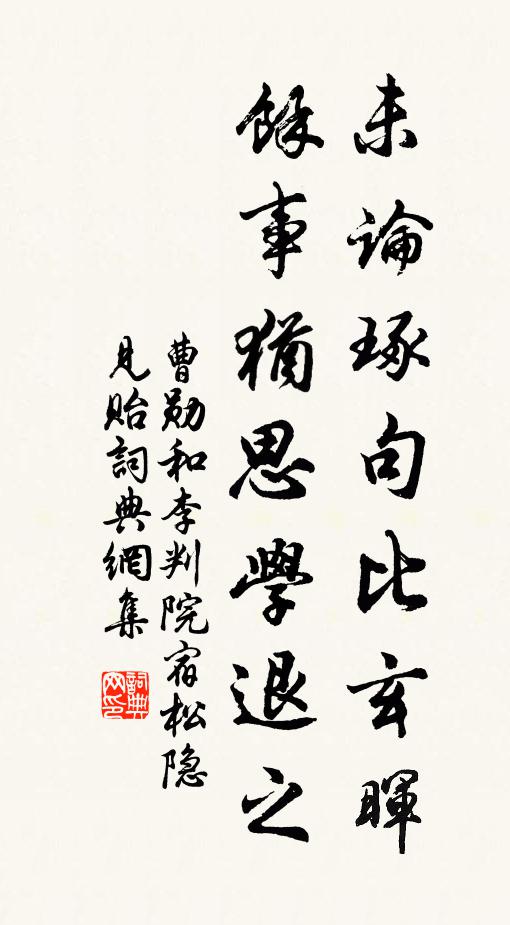 未論琢句比玄暉
餘事猶思學退之
曹勛和李判院宿松隐
見貽詞典網集
詞典网印